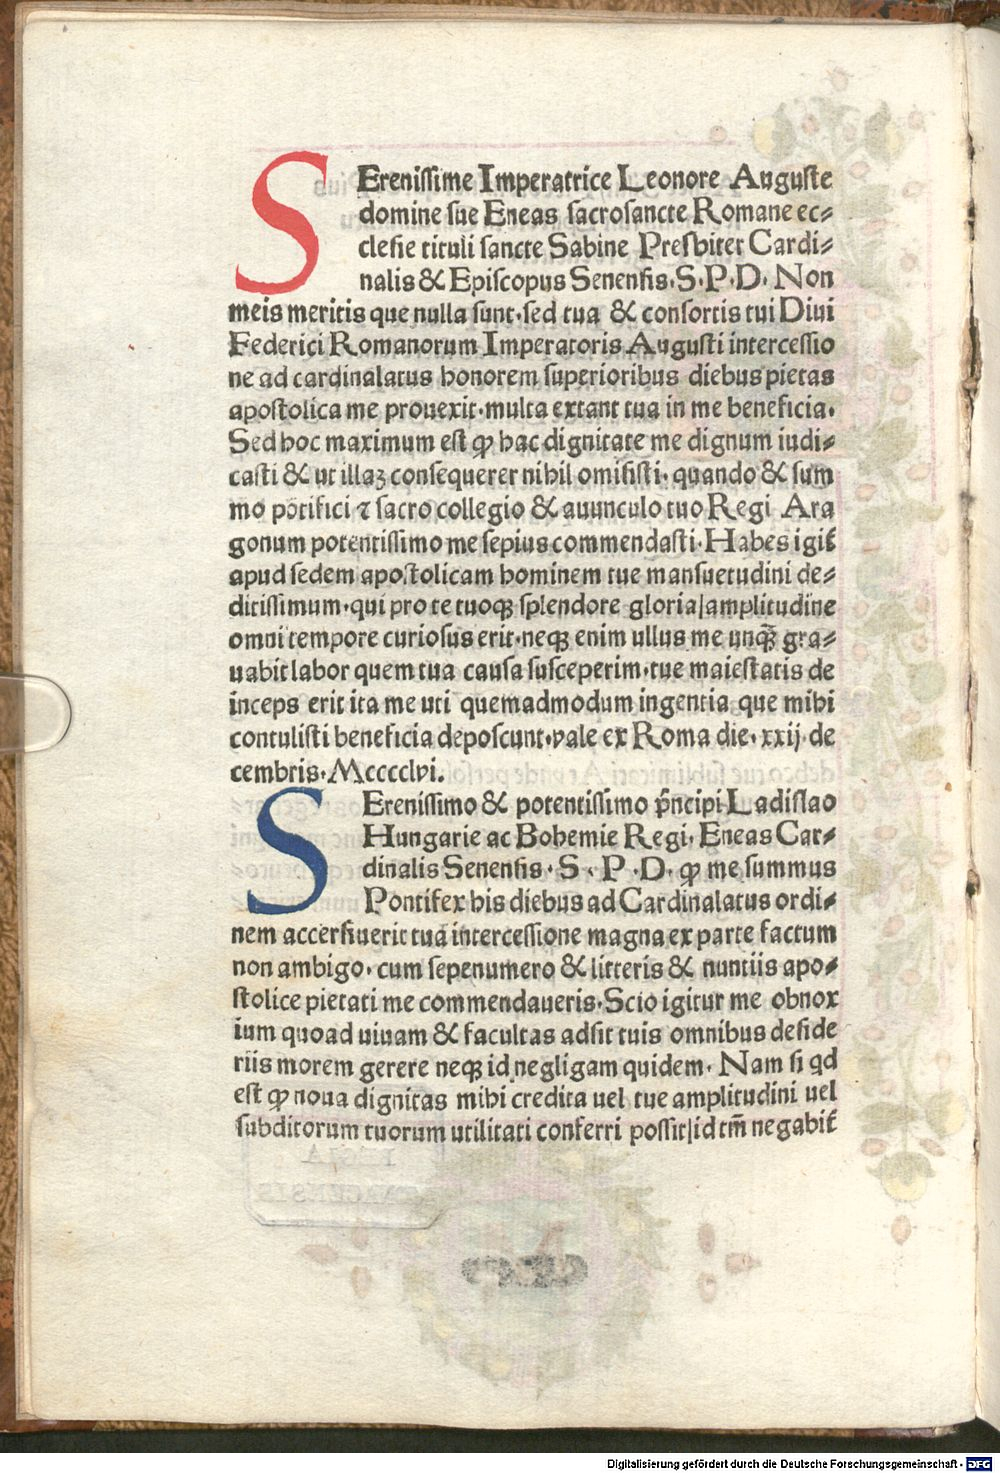 SErenissime Imperatrice Leonore Auguste
domine sue Eneas sacrosancte Romane ec⸗
clesie tituli sancte Sabine Presbiter Cardi⸗
nalis & Episcopus Senensis·S·P·D· Non
meis meritis que nulla sunt·sed tua & consortis tui Diui
Federici Romanorum Imperatoris Augusti intercessio
ne ad cardinalatus honorem superioribus diebus pietas
apostolica me prouexit·multa extant tua in me beneficia·
Sed hoc maximum est ꝙ hac dignitate me dignum iudi⸗
casti & ut illaꝫ consequerer nihil omisisti·quando & sum
mo pōtifici ⁊ sacro collegio & auunculo tuo Regi Ara
gonum potentissimo me sepius commendasti·Habes igit̄
apud sedem apostolicam hominem tue mansuetudini de⸗
ditissimum·qui pro te tuoqꝫ splendore gloria|amplitudine
omni tempore curiosus erit·neqꝫ enim ullus me unqꝫ̄ gra⸗
uabit labor quem tua causa susceperim·tue maiestatis de
inceps erit ita me uti quemadmodum ingentia que mihi
contulisti beneficia deposcunt·vale ex Roma die·xxij·de
cembris·Mcccclvi.
SErenissimo & potentissimo p̄ncipi Ladislao
Hungarie ac Bohemie Regi·Eneas Car⸗
dinalis Senensis·S·P·D·ꝙ me summus
Pontifex his diebus ad Cardinalatus ordi⸗
nem accersiuerit tua intercessione magna ex parte factum
non ambigo·cum sepenumero & litteris & nuntiis apo⸗
stolice pietati me commendaueris·Scio igitur me obnox
ium quoad uiuam & facultas adsit tuis omnibus deside
riis morem gerere neqꝫ id negligam quidem· Nam si qd
est ꝙ noua dignitas mihi credita uel tue amplitudini uel
subditorum tuorum utilitati conferri possit|id tm̄ negabit̄
Digitalisierung gefördert durch die Deutsche Forschungsgemeinschaft - DFG